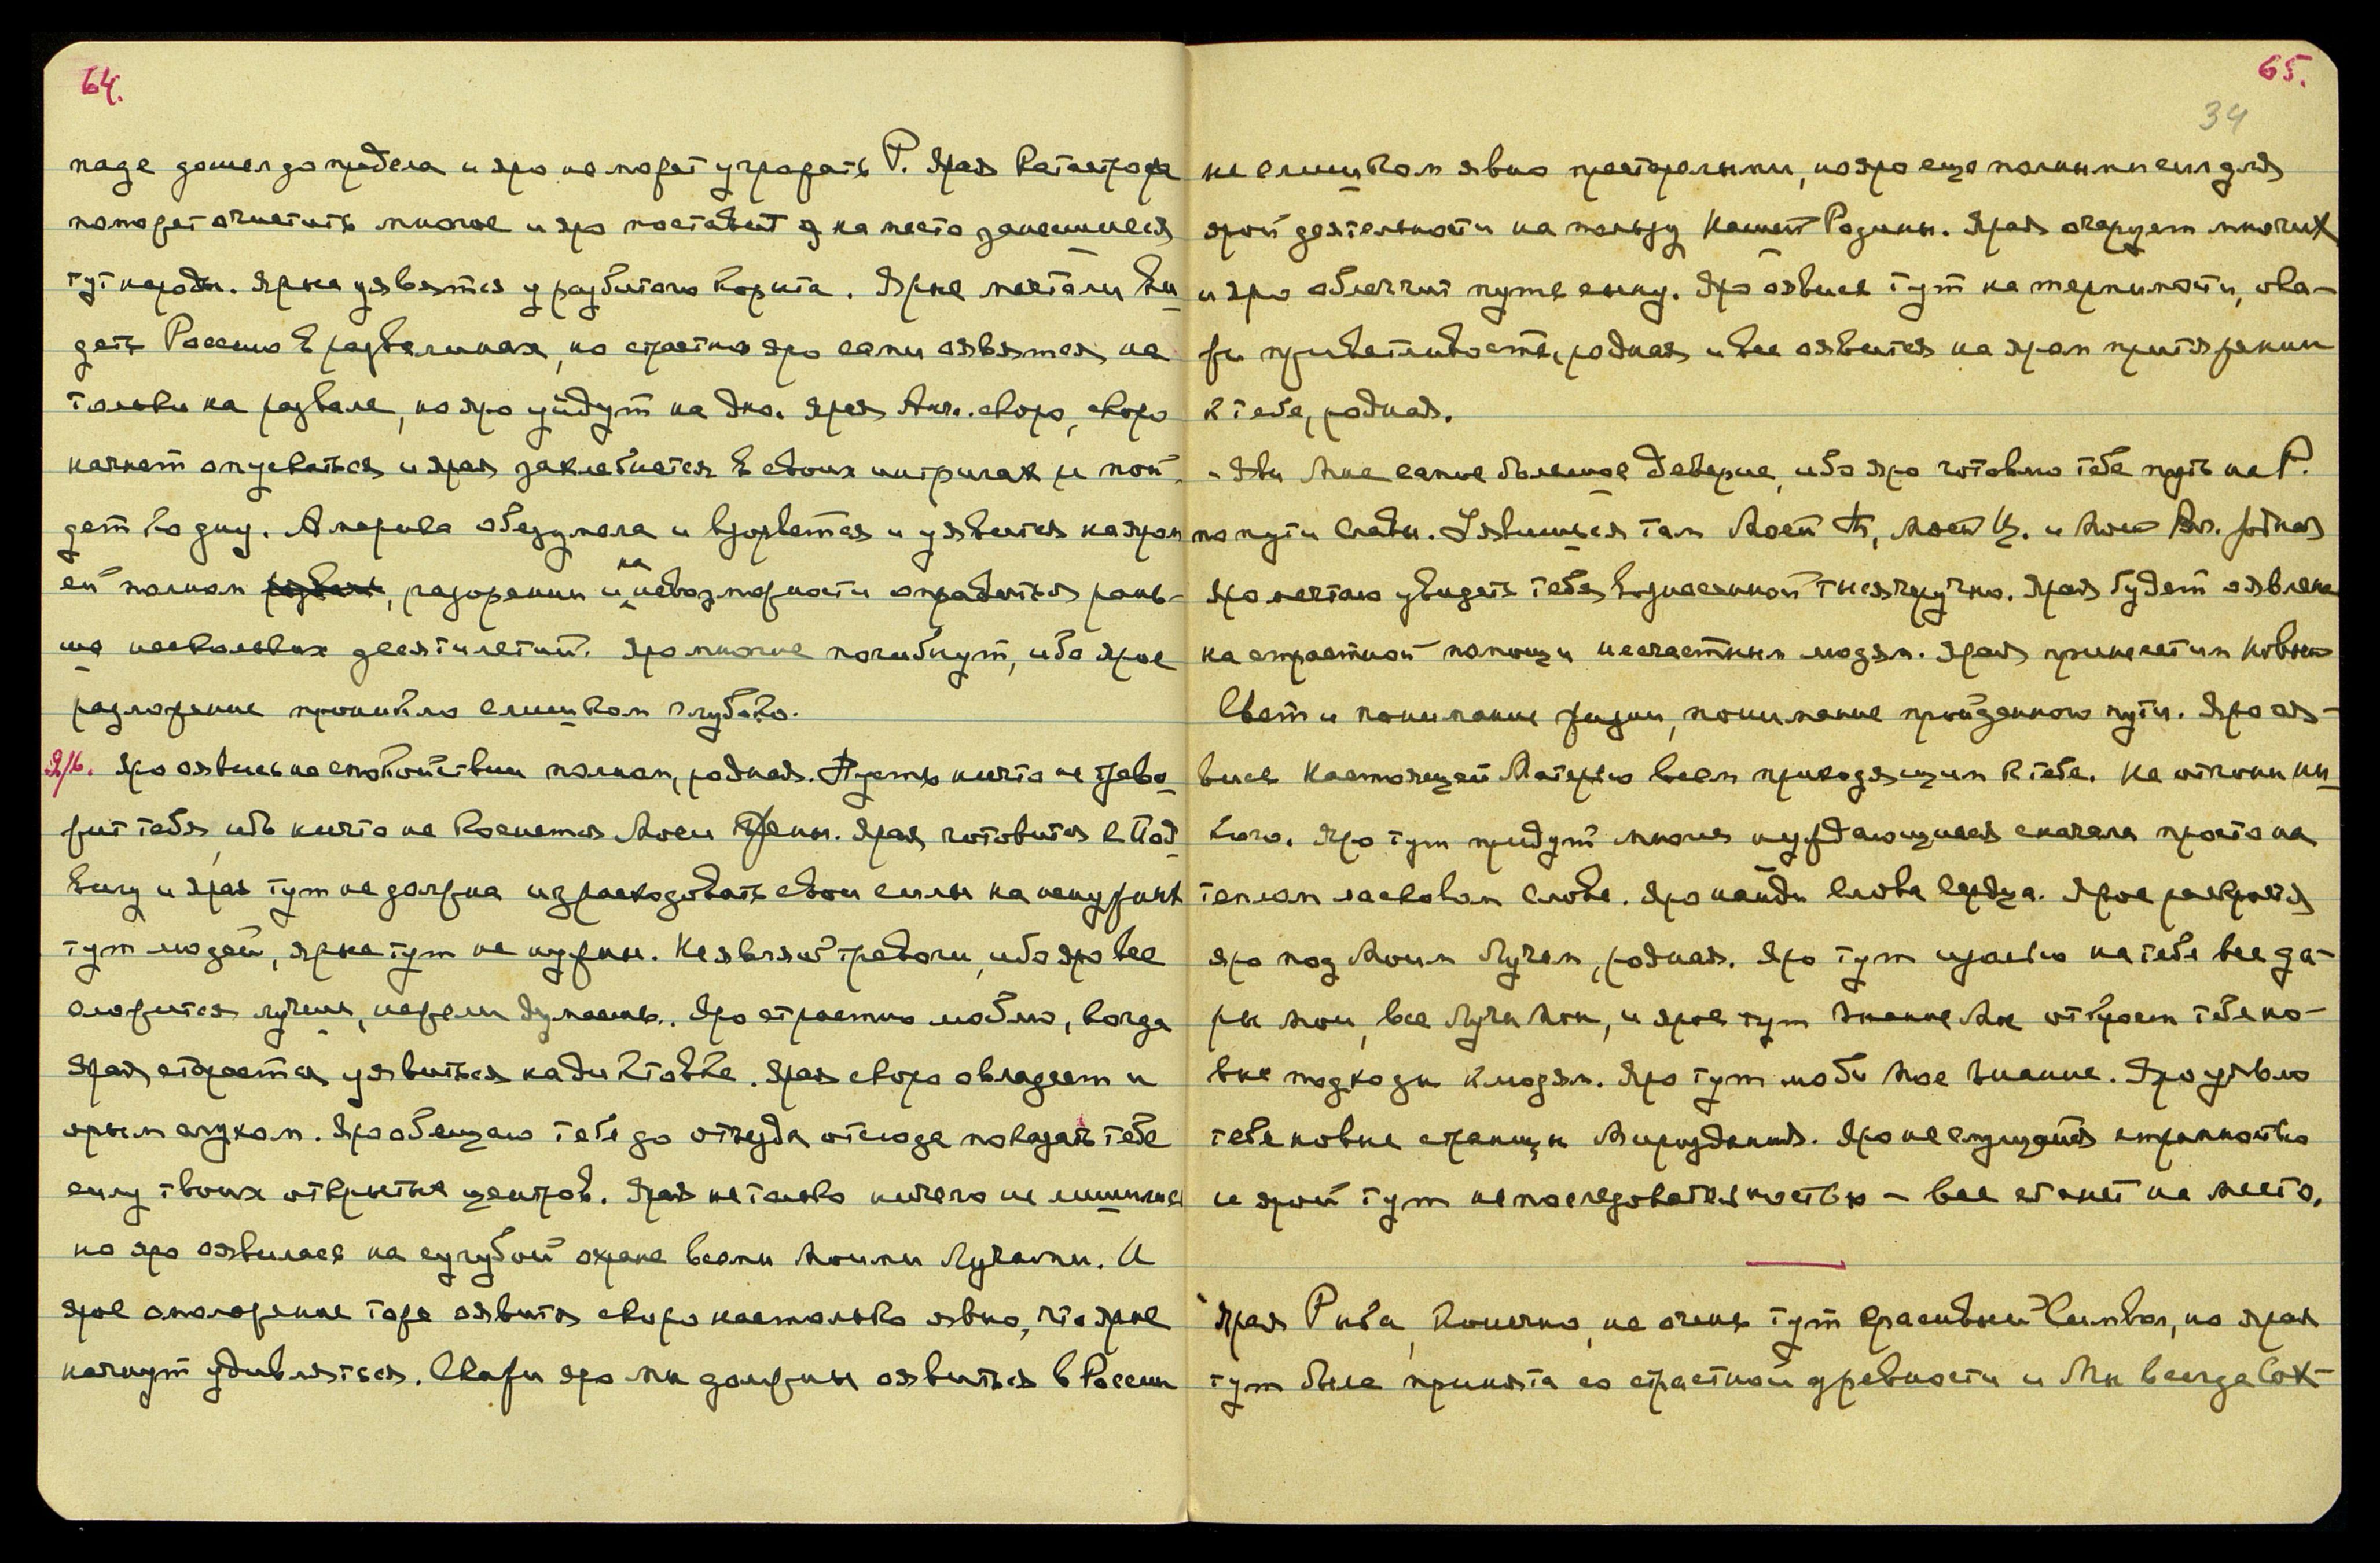 64.
паде дошел до предела и яро не может угрожать Р. Ярая катастрофа
поможет очистить многое и яро поставит на место зanесшиеся
тут народы. Ярые уявятся у разбитого корыта. Ярые мечтали ви
деть Россию в развалинах, но страстно яро сами оявятся на
только на развале, но яро уйдут на дно. Ярая Анг. скоро, скоро
начнет опускаться и ярая захлебнется в своих интригах и пой
дет ко дну. Америка обезумела и взорвется и уявится на яром
ей полном, разорении и на невозможности оправиться рань-
ше нескольких десятилетий. Яро многие погибнут, ибо ярое
разложение проникло слишком глубоко.
Яро оявись на спокойствии полном, родная. Пусть ничто не трево
жит тебя, ибо ничто не коснется Моей Жены. Ярая готовится к Под
вигу и ярая тут не должна израсходовать свои силы на ненужных
тут людей, ярые тут не нужны. Не являй тревоги, ибо яро все
сложится лучше, нежели думаешь. Яро страстно люблю, когда
ярая старается уявиться на диктовке. Ярая скоро овладеет и
ярым слухом. Яро обещаю тебе до отъезда отсюда показать тебе
силу твоих открытых центров. Ярая не только ничего не лишилась
но яро оявилась на сугубой охране всеми Моими Лучами. И
ярое омоложение тоже оявится скоро настолько явно, что ярые
начнут удивляться. Скажи яро мы должны оявиться в России
65.
34
не слишком явно престарелыми, но яро еще полными сил для
ярой деятельности на пользу нашей Родины. Ярая очарует многих
и яро облегчит путь сыну. Яро оявись тут на терпимости, ока-
жи приветливость, родная и все оявится на яром притяжении
к тебе, родная.
- Яви Мне самое большое доверие, ибо яро готовлю тебе путь на Р.
по пути славы. Уявишься там Моей , Моей . и Моей . родная
яро мечтаю увидеть тебя вознесенной тысячеручно. Ярая будет оявлена
на страстной помощи несчастным людям. Ярая принесет им новый
Свет и понимание жизни, понимание пройденного пути. Яро оя-
вись Настоящей Матерью всем приходящим к тебе. Не отгони ни
кого. Яро тут придут многие нуждающиеся сначала просто на
теплом ласковом слове. Яро найди слова Сердца. Ярое раскроется
яро под Моим Лучем, родная. Яро тут изолью на тебя все да-
ры мои, все Лучи Мои, и ярое тут знание Мое откроет тебе но-
вые подходы к людям. Яро тут люби Мое знание. Яро уявлю
тебе новые страницы Мироздания. Яро не смущайся странностью
и ярой тут непоследовательностью - все станет на место.
Ярая Рыба, конечно, не очень тут красивый Символ, но ярая
тут была принята со страстной древности и Мы всегда сох-